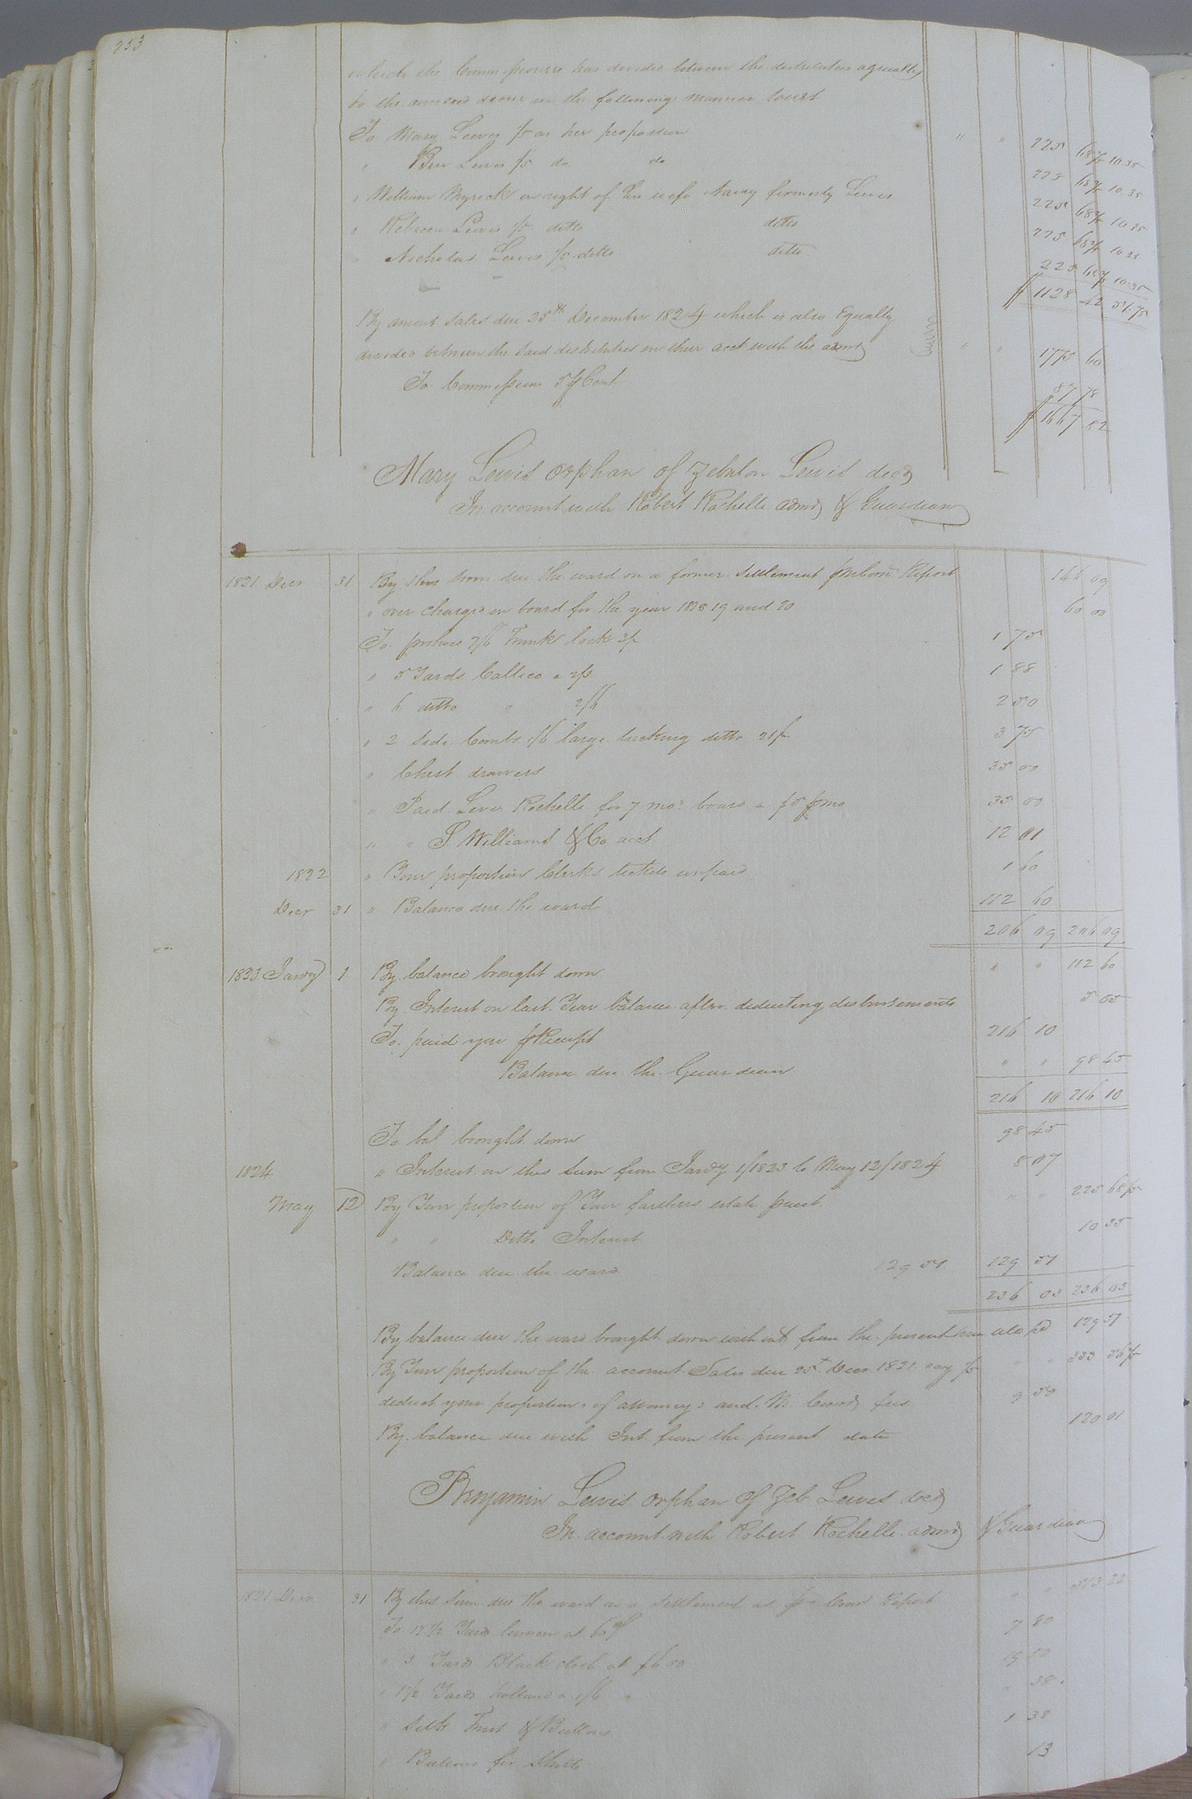 253
which the Commissioners has divided between the distributees agreeably
to the annexed decree in the following manner to wit
To Mary Lewis for her proportion " " 225 68½ 10 35
" Ben Lewis for do do 225 68½ 10 35
" William Myrick in right of his wife Nancy formerly Lewis 225 68½ 10 35
" Rebecca Lewis for ditto ditto 225 68½ 10 35
" Nicholas Lewis for ditto ditto 225 68½ 10 35
$1128 42 51.75
By amout sales due 25th December 1824 which is also Equally
divided between the said distributees in their acct with the admr " " 1775 60
To Commissions 5 pCent 87 78
$1667 82
Mary Lewis orphan of Zebulon Lewis decd
In account with Robert Rochelle admr & Guardian
1821 Decr 31 By this sum due the ward on a former settlement Report 146 09
" over charge in board for the year 1818 19 and 20 60 00
To Trunk lock 3/ 1 75
" 5 Yards Callico a 2/3 1 88
" 6 ditto " 2/6 2 50
" 2 Side Combs /6 large tucking ditto 21/ 3 75
" Chest drawers 35 00
" Paid Levi Rochelle for 7 mos board a $5 pr mo 35 00
" " J. Williams & Co acct 12 01
1822 " Your proportion Clerks tickets unpaid 1 60
Decr 31 " Balance due the ward 112 60
206 09 206 09
1823 Janry 1 By balance brought down " " 112 60
By Interest on last Year balance after deducting disbursements 5 05
To paid you pr Receipt 216 10
Balance due the Guardian " " 98 45
216 10 216 10
To bal brought down 98 45
1824 " Interest on this sum from Janry 1/1823 to May 12/1824 8 07
May 12 By Your proportion of Your fathers estate princt " " 225 68½
" " Ditto Interest 10 35
Balance due the ward 129 51 129 51
236 03 236 03
By balance due the ward brought down with int from the present date 129 51
By Your proportion of the account Sales due 25th Decr 1821 say for " " 333 56½
deduct your proportion of attorneys and fees 9 50
By balance due with Int from the present date 120 01
Benjamin Lewis orphan of Zeb Lewis decd
In account with Robert Rochelle admr & Guardian
1821 Decr 31 By this sum due the ward on a settlement as pr Court Report " " 313 22
To 12½ Yard at 60 7 80
" 3 Yards Black cloth at $6 50 19 50
" 1½ Yards holland a 1/6 " 38
" Silk Twist & Buttons 1 38
" Buttons for Shirts 13